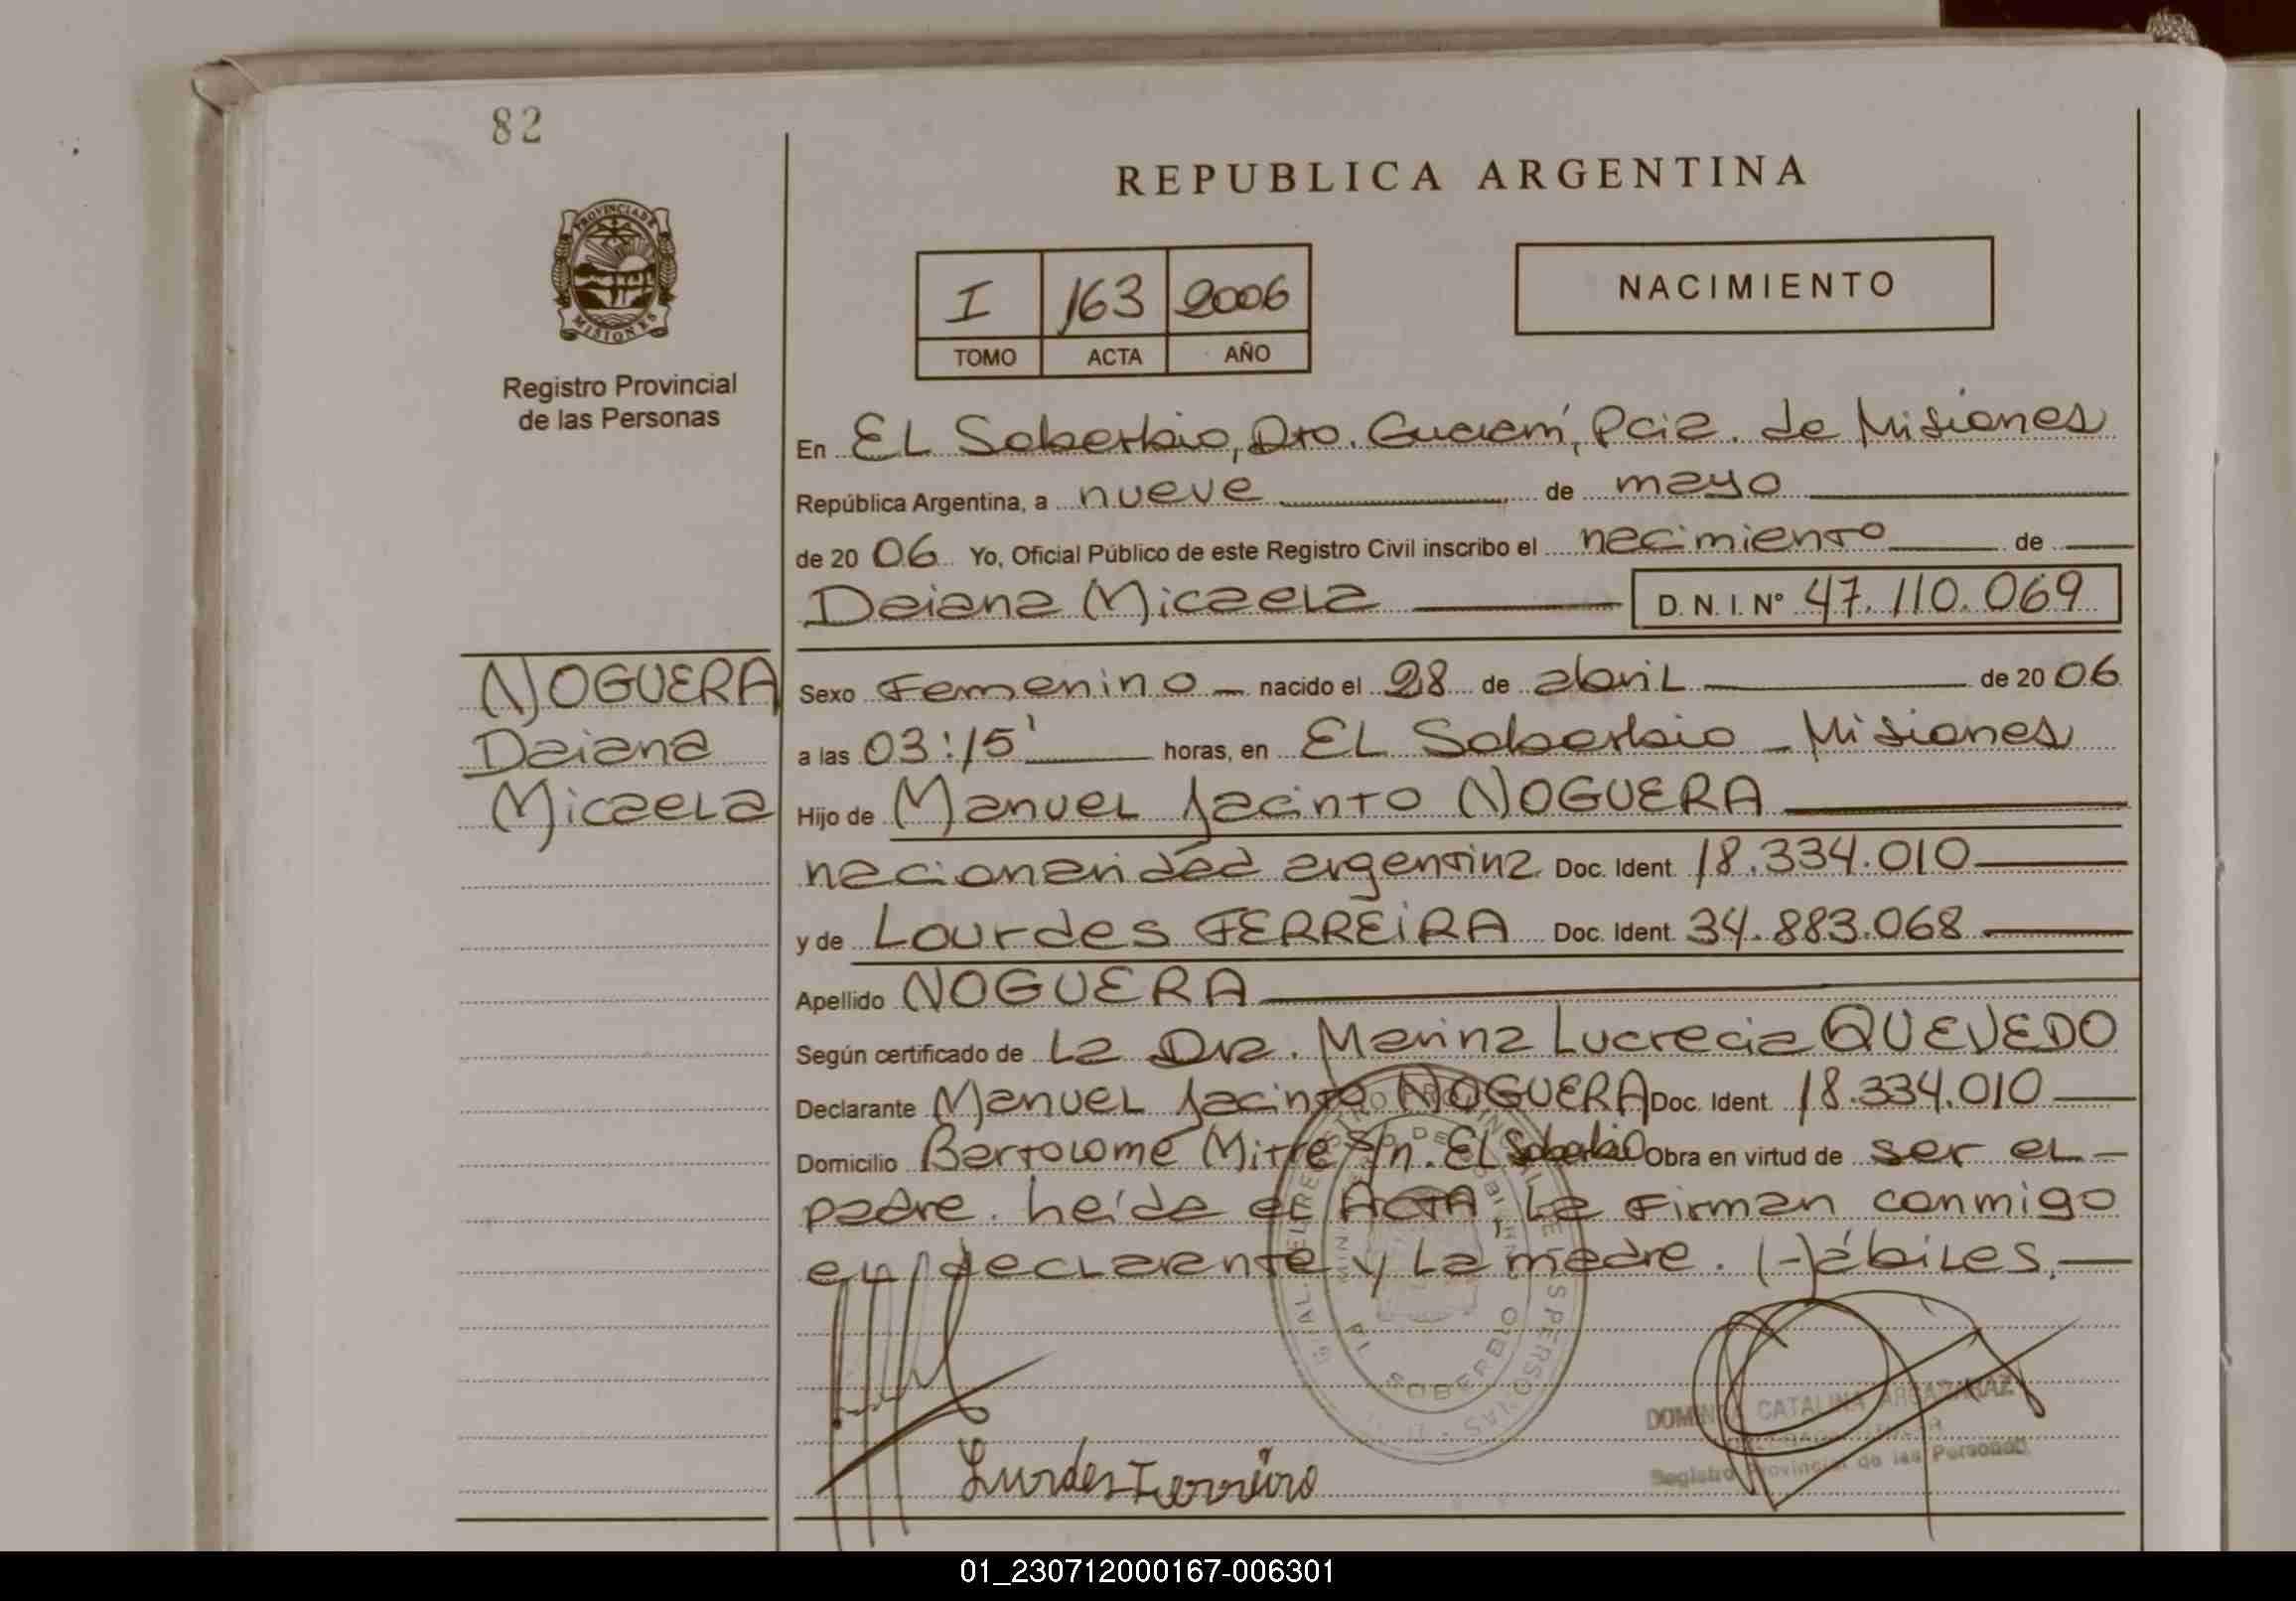 82
REPUBLICA ARGENTINA
PROVINCIA DE
MISIONES
Registro Provincial
de las Personas
I 163 2006
TOMO ACTA AÑO
NACIMIENTO
En EL Soberbio, Dto. Guaraní, Pcia. de Misiones
República Argentina, a nueve de mayo
de 20 06 Yo, Oficial Público de este Registro Civil inscribo el nacimiento de
Daiana Micaela D. N. I. Nº 47.110.069
NOGUERA
Daiana
Micaela
Sexo Femenino nacido el 28 de abril de 20 06
a las 03:15' horas, en EL Soberbio - Misiones
Hijo de Manuel Jacinto NOGUERA
nacionalidad argentina. Doc. Ident. 18.334.010
y de Lourdes FERREiRA Doc. Ident. 34.883.068
Apellido NOGUERA
Según certificado de La Dra. Marina Lucrecia QUEVEDO
Declarante Manuel Jacinto NOGUERA Doc. Ident. 18.334.010
Domicilio Bartolomé Mitre s/n. El Soberbio Obra en virtud de ser el
padre. Leída el ACTA, la firman conmigo
el declarante y la madre. Hábiles.
SOBERBIO
Lurdes Ferreira
CATALINA
Registro Provincial de las Personas
01_230712000167-006301